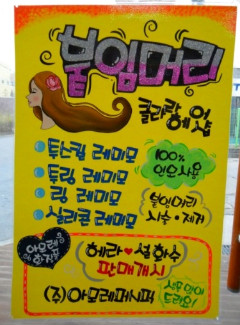 붙임머리
클라랑
헤어샵
투스킬 레미모
투링 레미모
링 레미모
실리콘 레미모
100%
인모사용
붙임머리
시술·제거
아모레
화장품
헤라♥설화수
판매개시
(주)아모레퍼시픽